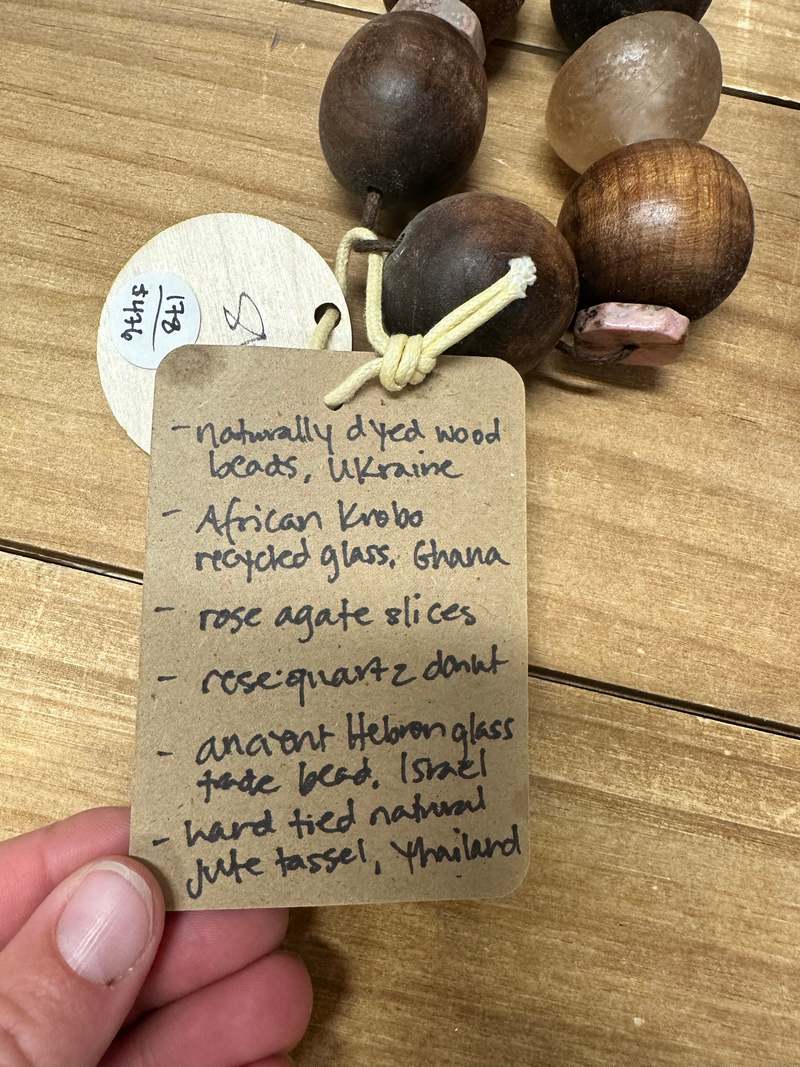 178
$476
8
- naturally dyed wood
beads, Ukraine
- African Krobo
recycled glass. Ghana
- rose agate slices
- rose quartz donut
- ancient Hebron glass
trade bead. Israel
- hand tied natural
jute tassel, Thailand